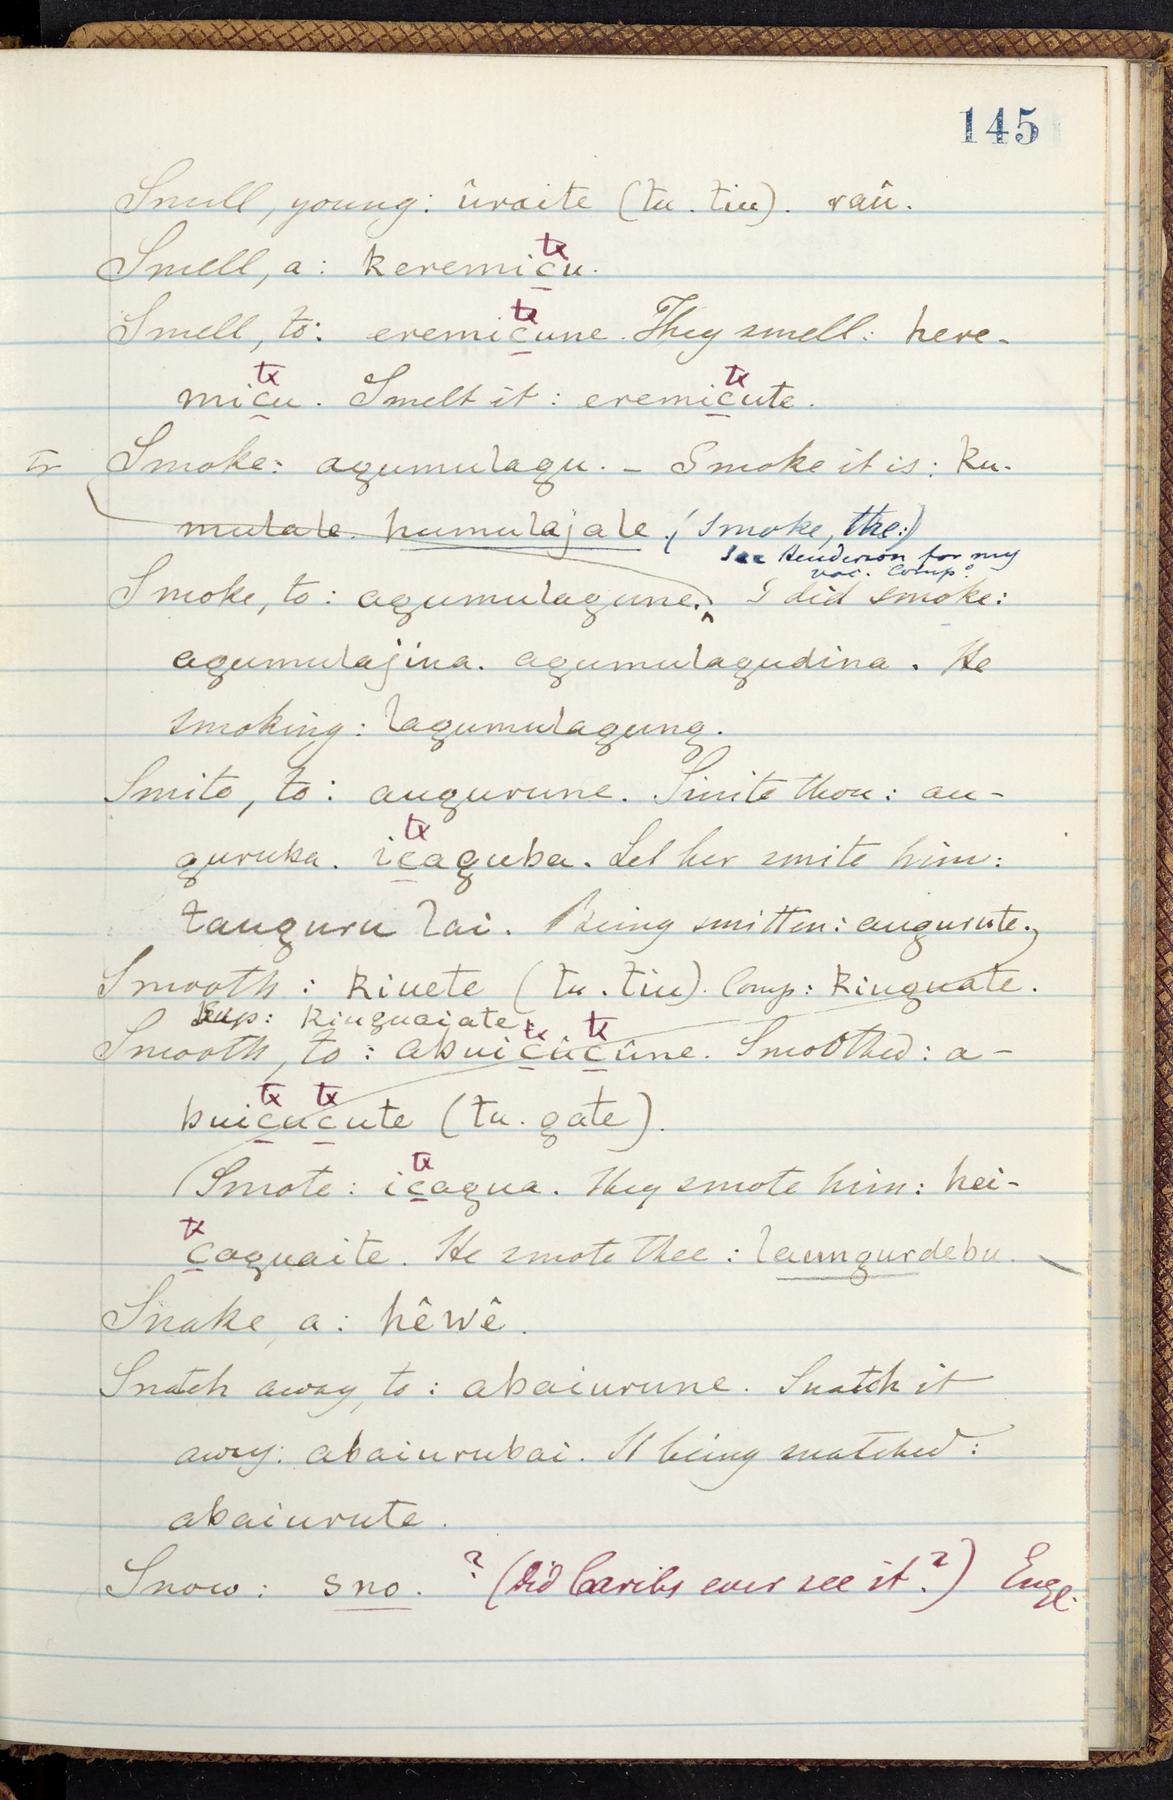 145
Small, young: ûraite (tu. tiu). raû.
Smell, a: keremicu.
tx
Smell, to: eremicune. They smell: here-
tx
micu. Smelt it: eremicute.
tx tx
tr Smoke: agumulagu. – Smoke it is: ku-
mulale. humulajale. (Smoke, the:)
See Henderson for my
voc. comp.
Smoke, to: agumulagune. I did smoke:
agumulajina. agumulagudina. He
smoking: lagumulagung.
Smite, to: augurune. Smite thou: au-
guruba. icaguba. Let her smite him:
tx
tauguru lai. Being smitten: augurute.
Smooth: kiuete (tu. tiu). Comp: kiuguate.
Sup: kiuguaiate.
Smooth, to: abuicûcûne. Smoothed: a-
tx tx
buicucute (tu. gate).
tx tx
(Smote: icagua. They smote him: hei-
tx
caguaite. He smote thee: laungurdebu.
tx
Snake, a: hêwê.
Snatch away, to: abaiurune. Snatch it
away: abaiurubai. It being snatched:
abaiurute.
Snow: sno. ? (Did Caribs ever see it?) Engl.